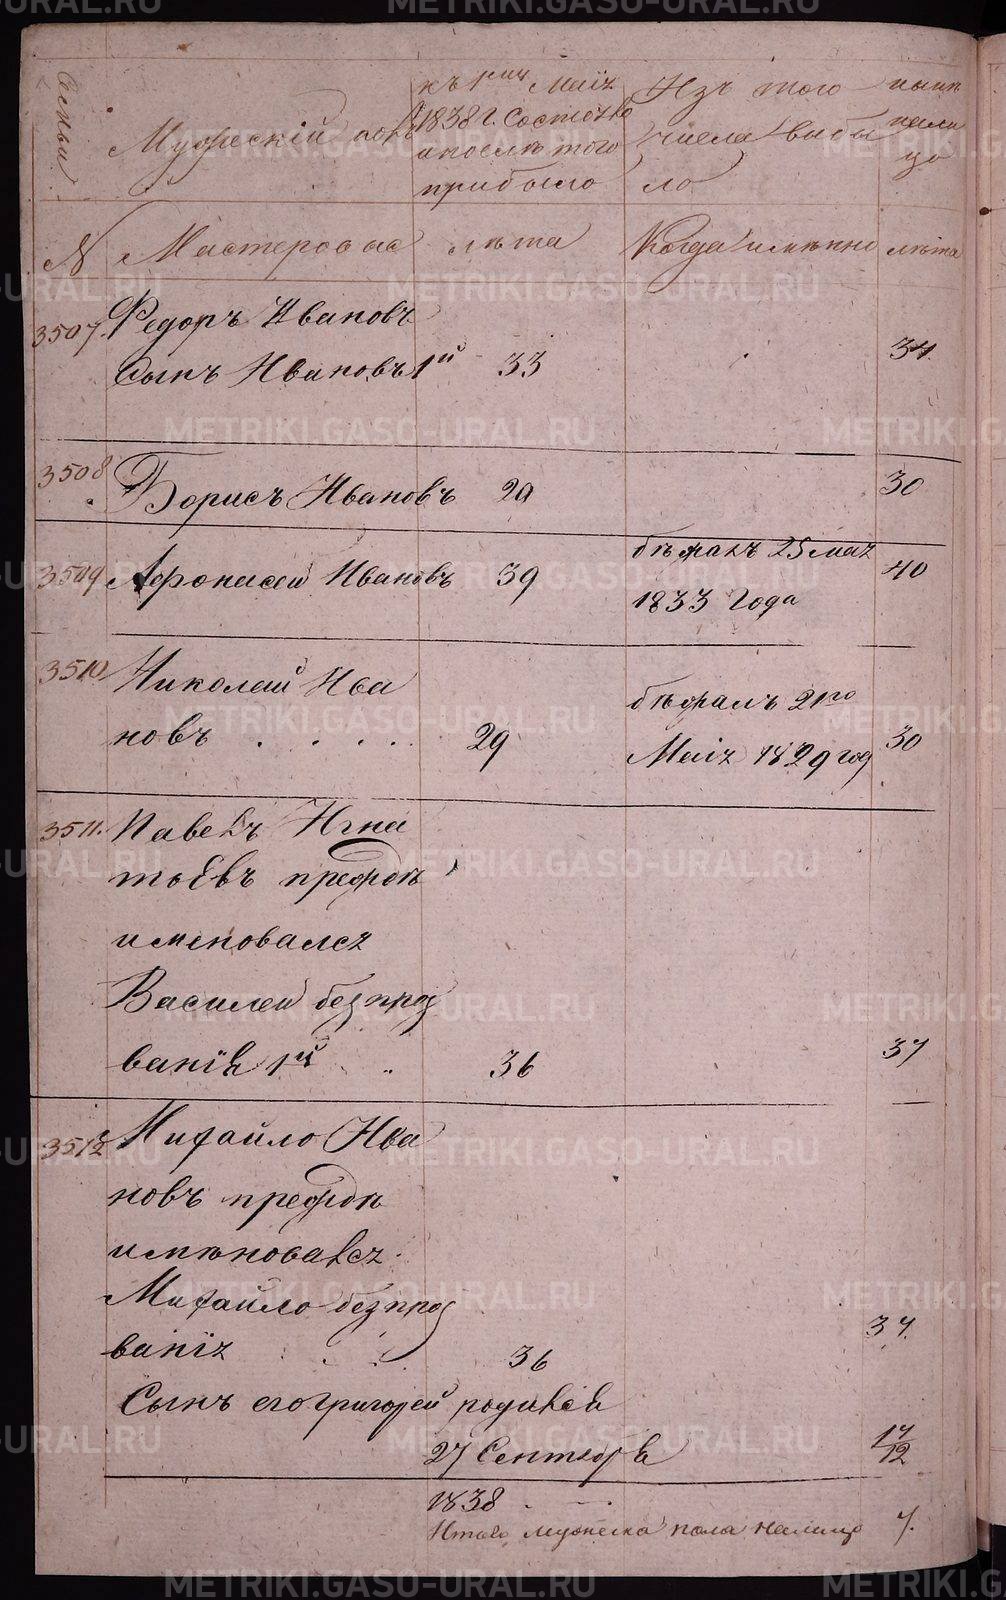 METRIKI.GASO-URAL.RU
Семьи
Мужескій полъ
къ 1му Маія
1838 г. состояло
и послѣ того
прибыло
Изъ того
числа выбы
ло
нынѣ
на ли
цо
N
Мастеровые
лѣта
Когда имѣнно
лѣта
3507.
Федоръ Ивановъ
Сынъ Ивановъ 1й 33 34.
3508
Борисъ Ивановъ 29 30
3509
Афонасей Ивановъ 39
бѣжалъ 25 мая
1833 Года
40
3510
Николай Ива
новъ . . . . . 29
бѣжалъ 21го
Маія 1829 год
30
3511.
Павелъ Игна
тьевъ прежде
именовался
Василей безпроз
ванія 1й 36 37
3512
Михайло Ива
новъ прежде
имѣновался
Михайло безпроз
ванія 36 37.
Сынъ его Григорей родился
27 Сентября
1838
Итого мужеска пола налицо 7.